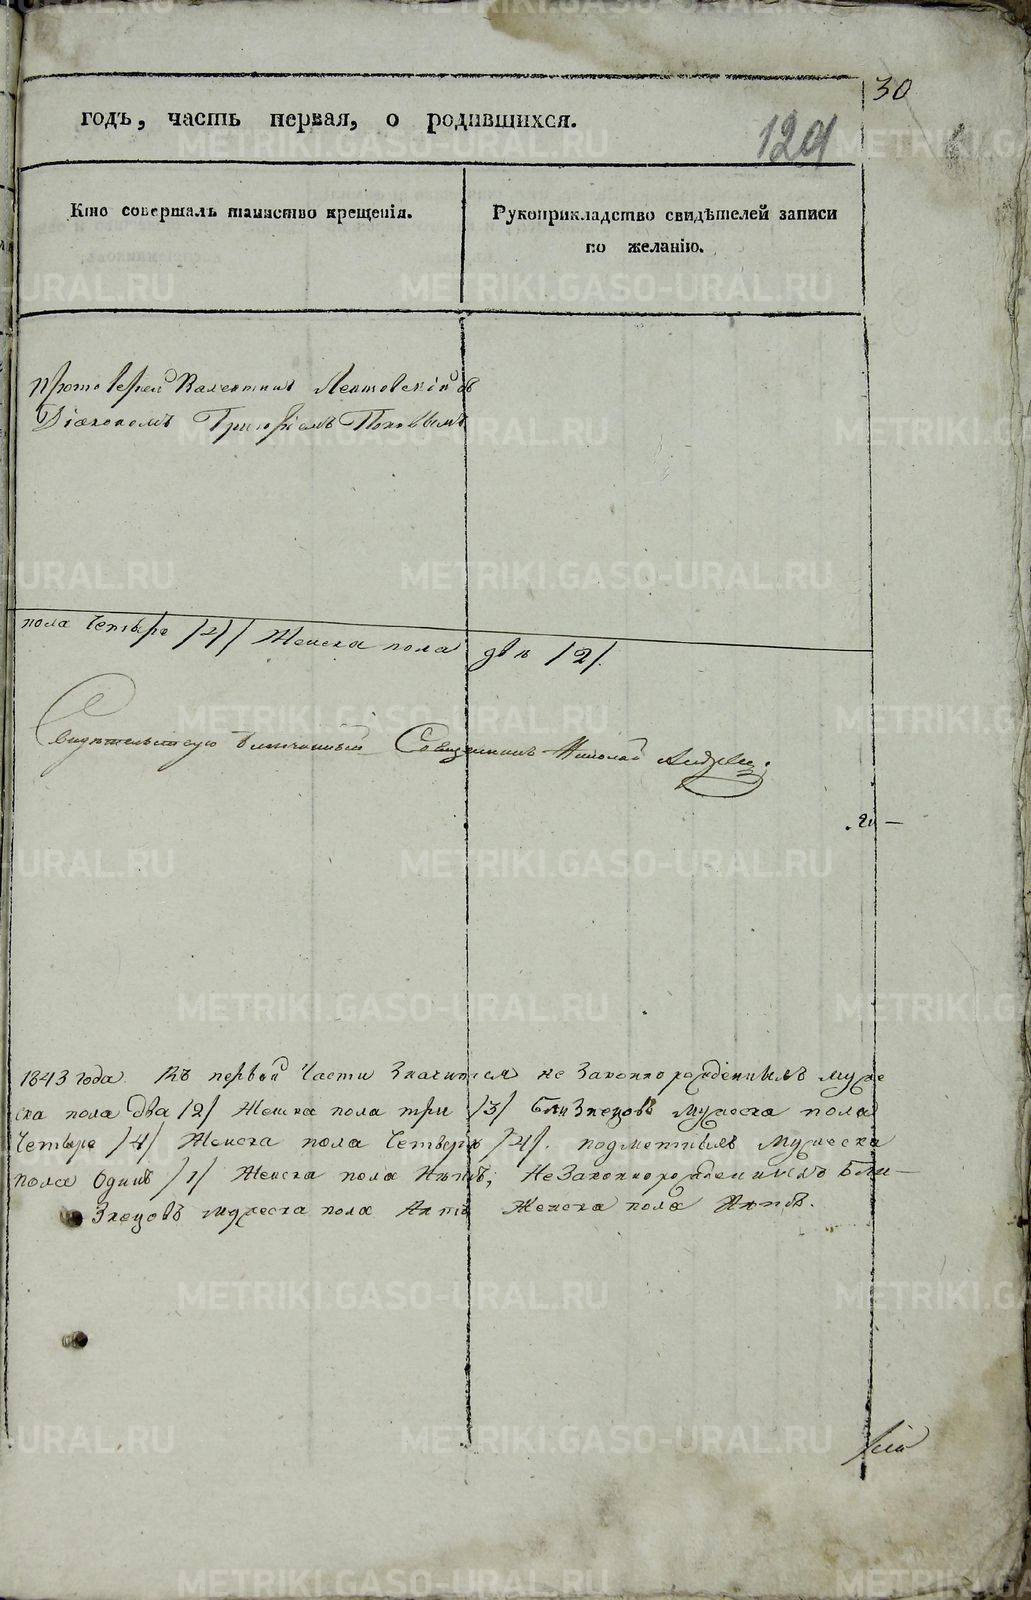 30
годъ, часть первая, о родившихся.
129
Кто совершалъ таинство крещенія.
Рукоприкладство свидѣтелей записи
по желанію.
Протоіерей Валентинъ Левтовскій съ
Діакономъ Григоріемъ Поповымъ
пола Четыре /4/ Женска пола двѣ /2/.
Свидѣтельствую Священникъ Николай
1843 года. Въ первой Части Значится не Законнорожденнымъ муже
ска пола два /2/ Женска пола три /3/ Близнецовъ Мужеска пола
Четыре /4/ Женска пола Четыре /4/. подметнымъ Мужеска
пола Одинъ /1/ Женска пола Нѣтъ; НеЗаконнорожденныхъ Бли-
Знецовъ мужеска пола Нѣтъ Женска пола Нѣтъ.
METRIKI.GASO-URAL.RU